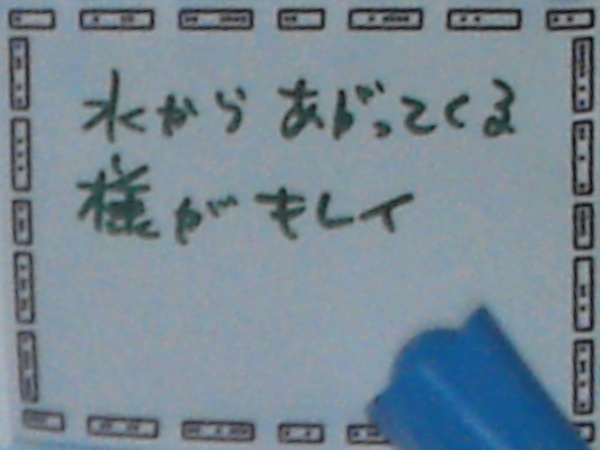 水からあがってくる
様がキレイ